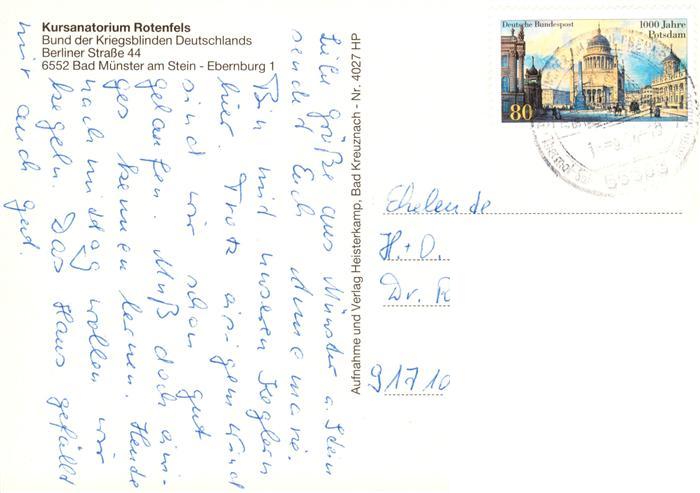 Kursanatorium Rotenfels
Bund der Kriegsblinden Deutschlands
Berliner Straße 44
6552 Bad Münster am Stein - Ebernburg 1
Deutsche Bundespost
1000 Jahre
Potsdam
80
Liebe Grüße aus Münster a. Stein
sendet Euch Annemarie.
Bin mit unseren Keglern
hier. Trotz eisigem Wind
sind wir schon gut
gelaufen. Muß doch eini-
ges kennen lernen. Heute
nachmittag wollen wir
kegeln. Das Haus gefällt
mir auch gut.
Aufnahme und Verlag Heisterkamp, Bad Kreuznach - Nr. 4027 HP
Eheleute
H. + O.
Dr.
91710